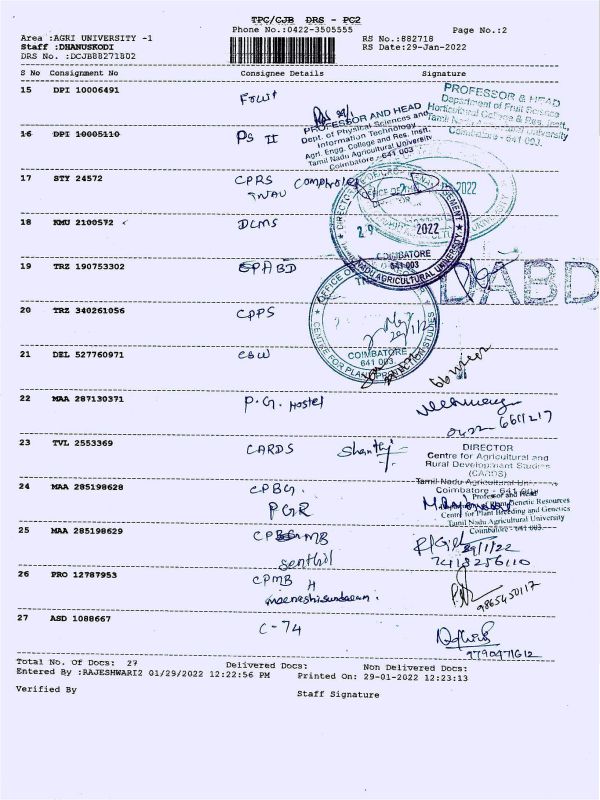 TPC/CJB DRS - PC2
Phone No.:0422-3505555 Page No.:2
Area :AGRI UNIVERSITY -1 RS No.:882718
Staff :DHANUSKODI RS Date:29-Jan-2022
DRS No. :DCJB88271802
S No Consignment No Consignee Details Signature
15 DPI 10006491 Fruit
PROFESSOR & HEAD
Department of Fruit Science
Horticultural College & Res. Instt.,
Tamil Nadu Agricultural University
Coimbatore - 641 003.
16 DPI 10005110 PS II
PROFESSOR AND HEAD
Dept. of Physical Sciences and
Information Technology
Agri. Engg. College and Res. Instt.
Tamil Nadu Agricultural University
Coimbatore - 641 003
17 STY 24572 CPRS Comptroller
TNAU
2022
18 KMU 2100572 DCMS
29 2022
COIMBATORE
641 003
TAMIL NADU AGRICULTURAL UNIVERSITY
19 TRZ 190753302 CPABD
DABD
20 TRZ 340261056 CPPS
CENTRE FOR PLANT PROTECTION STUDIES
COIMBATORE
641 003
21 DEL 527760971 CSW
22 MAA 287130371 P.G. Hostel
0422-6611217
23 TVL 2553369 CARDS Shanthi
DIRECTOR
Centre for Agricultural and
Rural Development Studies
(CARDS)
Tamil Nadu Agricultural University
Coimbatore - 641 003
24 MAA 285198628 CPBG.
PGR
Professor and Head
Department of Plant Genetic Resources
Centre for Plant Breeding and Genetics
Tamil Nadu Agricultural University
Coimbatore - 641 003.
25 MAA 285198629 CPMB
Senthil
29/1/22
7418256110
26 PRO 12787953 CPMB
Meenashisundaram.
9865430117
27 ASD 1088667 C-74
9790471612
Total No. Of Docs: 27 Delivered Docs: Non Delivered Docs:
Entered By :RAJESHWARI2 01/29/2022 12:22:56 PM Printed On: 29-01-2022 12:23:13
Verified By Staff Signature